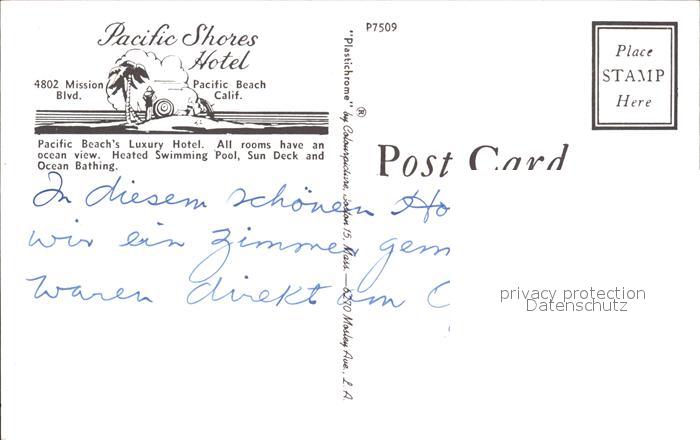 Pacific Shores
Hotel
4802 Mission Blvd.
Pacific Beach Calif.
Pacific Beach's Luxury Hotel. All rooms have an
ocean view. Heated Swimming Pool, Sun Deck and
Ocean Bathing.
In diesem schönen Ho
wir ein Zimmer gem
waren direkt am
"Plastichrome" ® by Colourpicture, Boston 15, Mass. — 6270 Mosley Ave., L. A.
P7509
Place
STAMP
Here
Post Card
privacy protection
Datenschutz